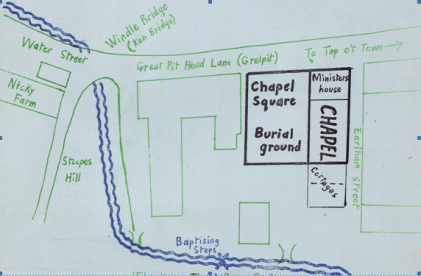 Windle Bridge
(Keb Bridge)
Water Street
Great Pit Head Lane (Grelpit)
To Top o't Town
Nicky
Farm
Chapel
Square
Ministers
house
Burial
ground
CHAPEL
Earlham Street
Stapes
Hill
Cottages
Baptising
Steps